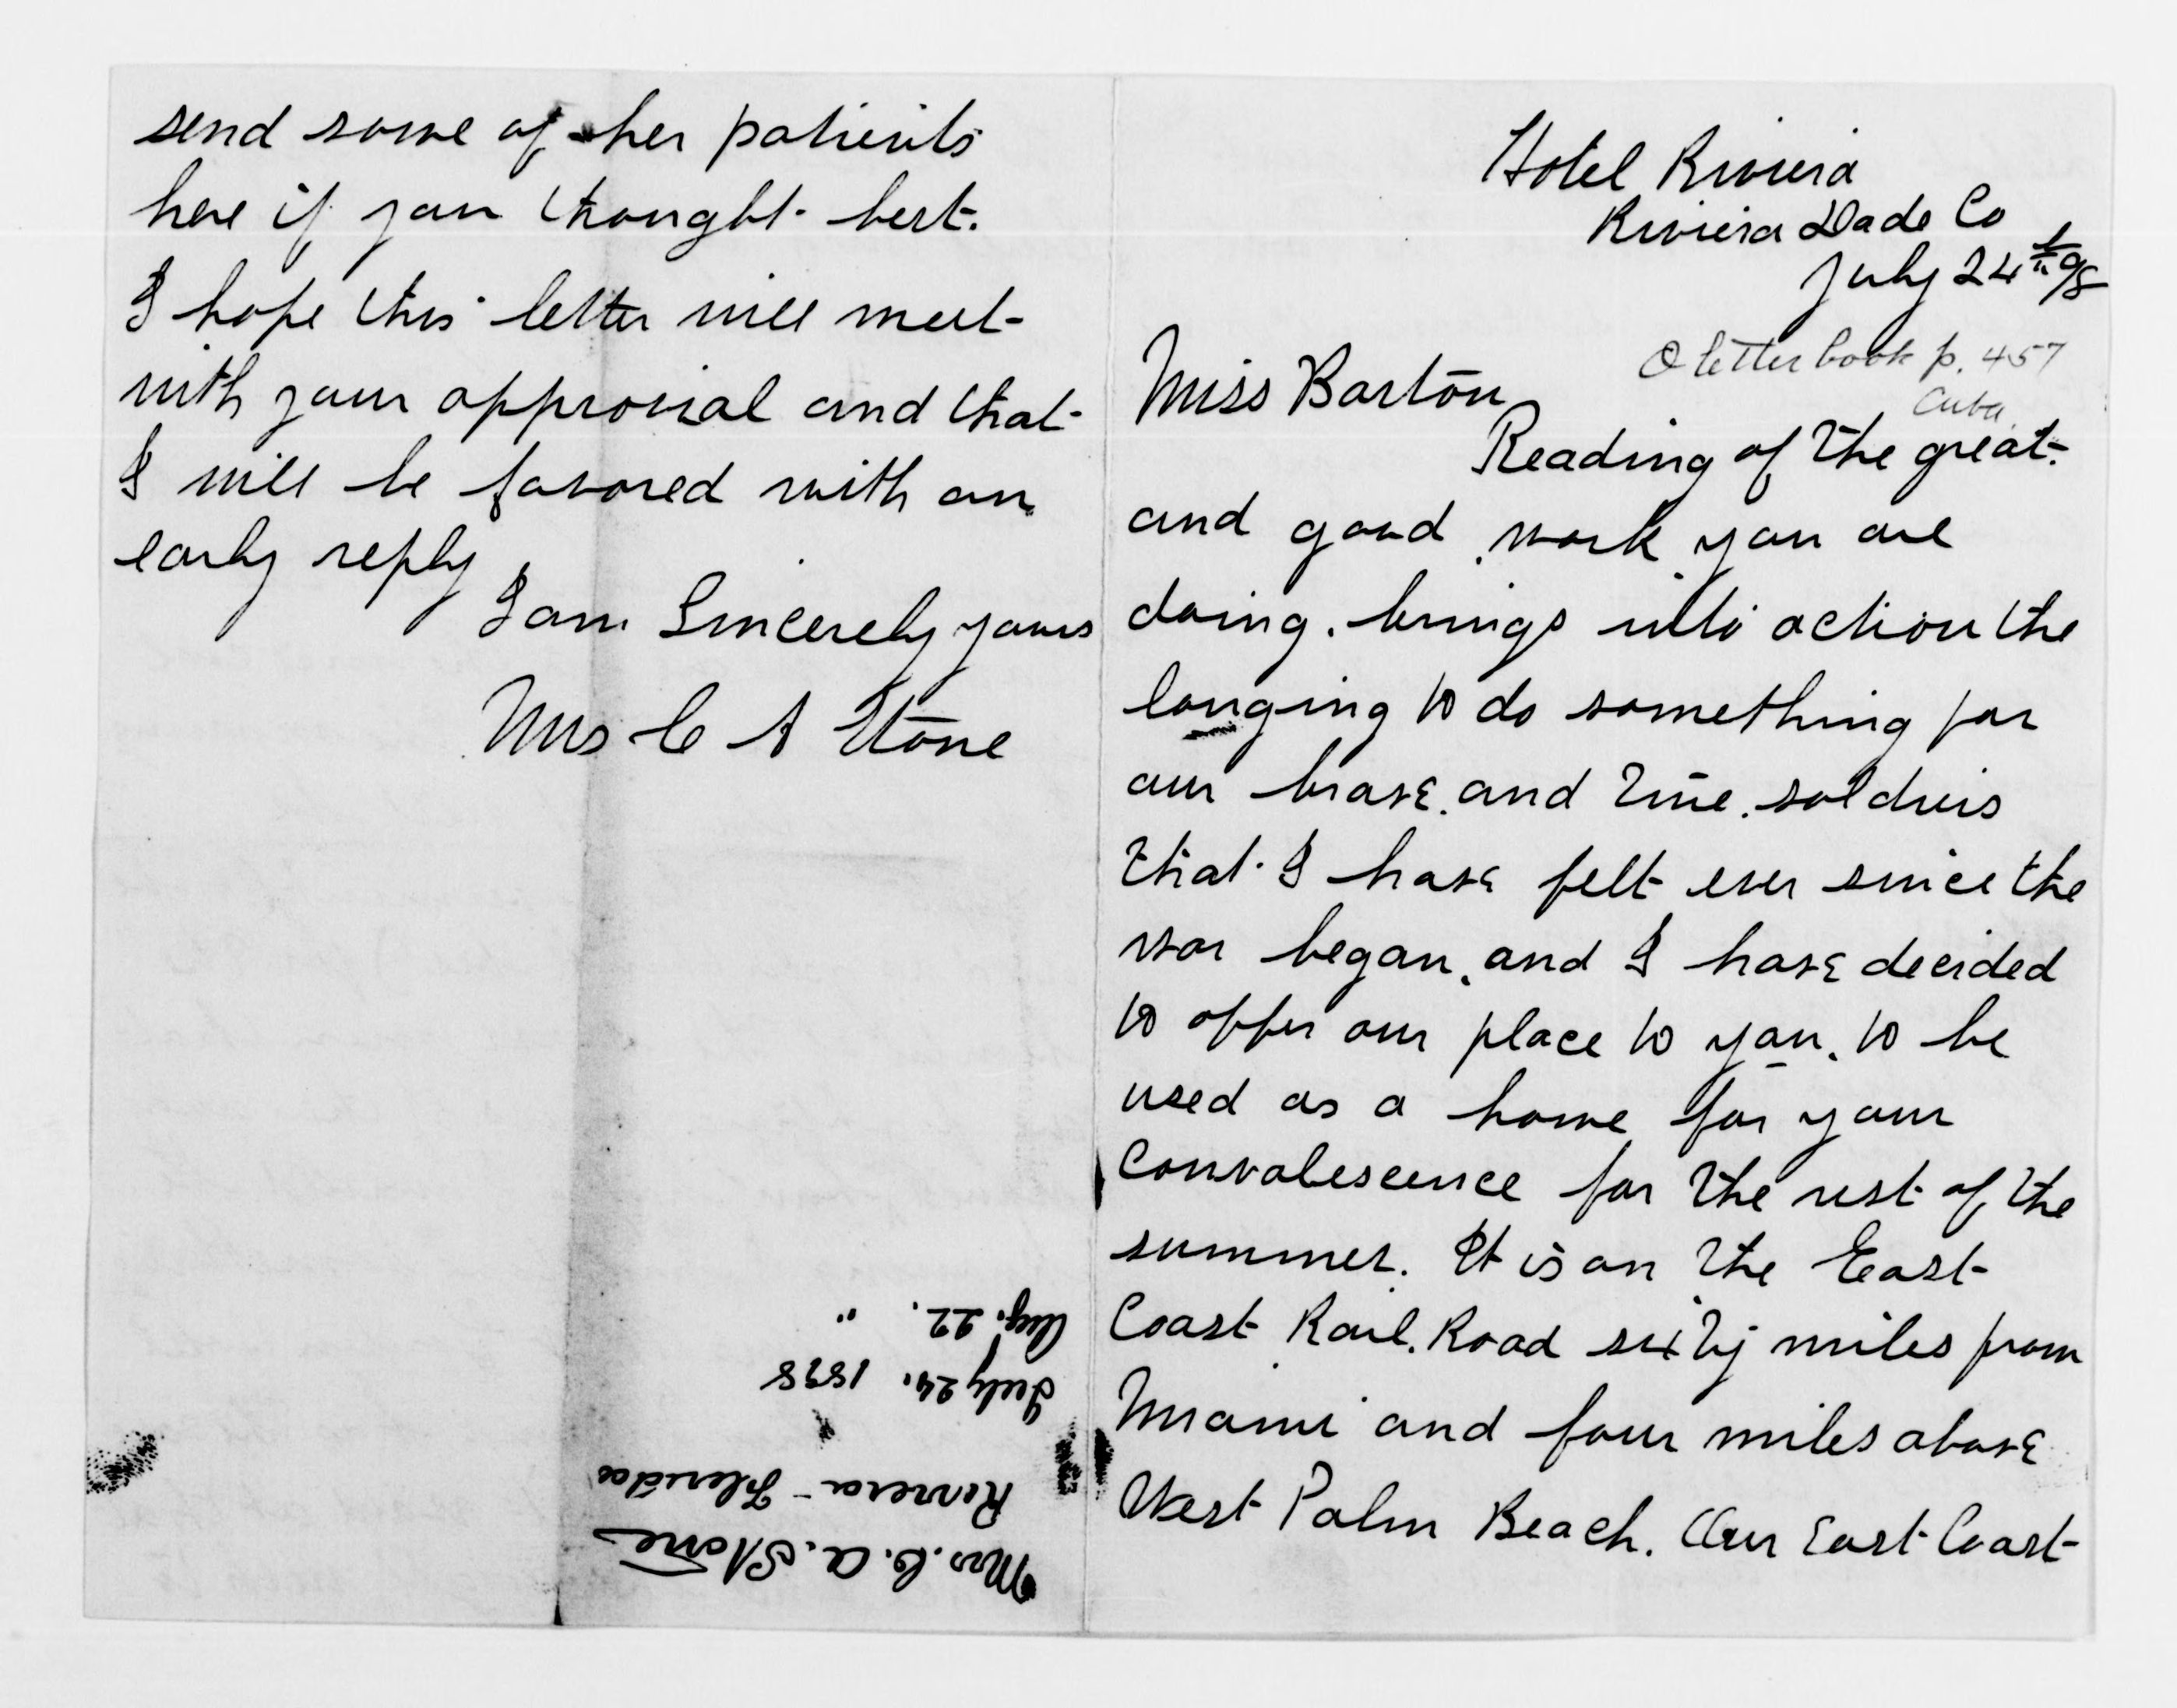 Hotel Riviera
Riviera Dade Co
July 24th 98
O letter book p. 457
Cuba
Miss Barton
Reading of the great
and good work you are
doing. brings into action the
longing to do something for
our brave. and true. soldiers
that I have felt ever since the
war began. and I have decided
to offer our place to you. to be
used as a home for your
Convalescence for the rest of the
summer. It is on the East
Coast Rail. Road sixty miles from
Miami and four miles above
West Palm Beach. Our East Coast
send some of her patients
here if you thought best.
I hope this letter will meet
with your approvial and that
I will be favored with an
early reply
I am Sincerely yours
Mrs C A Stone
Mrs. C. A. Stone
Riviera - Florida
July 24. 1898
Aug. 22. "